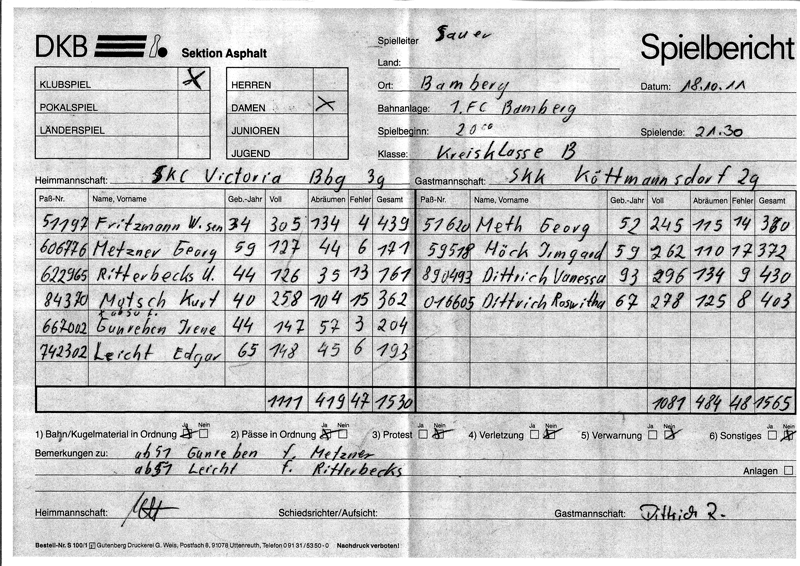 DKB Sektion Asphalt
Spielleiter Sauer
Spielbericht
Land:
KLUBSPIEL X HERREN
Ort: Bamberg Datum: 18.10.11
POKALSPIEL DAMEN X
Bahnanlage: 1. FC Bamberg
LÄNDERSPIEL JUNIOREN
Spielbeginn: 20 00 Spielende: 21.30
JUGEND
Klasse: Kreisklasse B
Heimmannschaft: SKC Victoria Bbg 3g Gastmannschaft: SKK Köttmannsdorf 2g
Paß-Nr. Name, Vorname Geb.-Jahr Voll Abräumen Fehler Gesamt Paß-Nr. Name, Vorname Geb.-Jahr Voll Abräumen Fehler Gesamt
51197 Fritzmann W. sen 34 305 134 4 439 51620 Meth Georg 52 245 115 14 380
606776 Metzner Georg 59 127 44 6 171 59518 Höck Irmgard 59 262 110 17 372
622965 Ritterbecks U. 44 126 35 13 161 890493 Dittrich Vanessa 93 296 134 9 430
84370 Mytsch Kurt 40 258 104 15 362 016605 Dittrich Roswitha 67 278 125 8 403
667002 Gunreben Irene 44 147 57 3 204
742302 Leicht Edgar 65 148 45 6 193
1111 419 47 1530 1081 484 48 1565
Ja Nein Ja Nein Ja Nein Ja Nein Ja Nein Ja Nein
1) Bahn/Kugelmaterial in Ordnung 2) Pässe in Ordnung 3) Protest 4) Verletzung 5) Verwarnung 6) Sonstiges
Bemerkungen zu: ab 51 Gunreben f. Metzner
ab 51 Leicht f. Ritterbecks Anlagen
Heimmannschaft: Schiedsrichter/Aufsicht: Gastmannschaft: Dittrich R.
Bestell-Nr. S 100/1 Gutenberg Druckerei G. Weis, Postfach 6, 91078 Uttenreuth, Telefon 0 91 31 / 53 50-0 Nachdruck verboten!